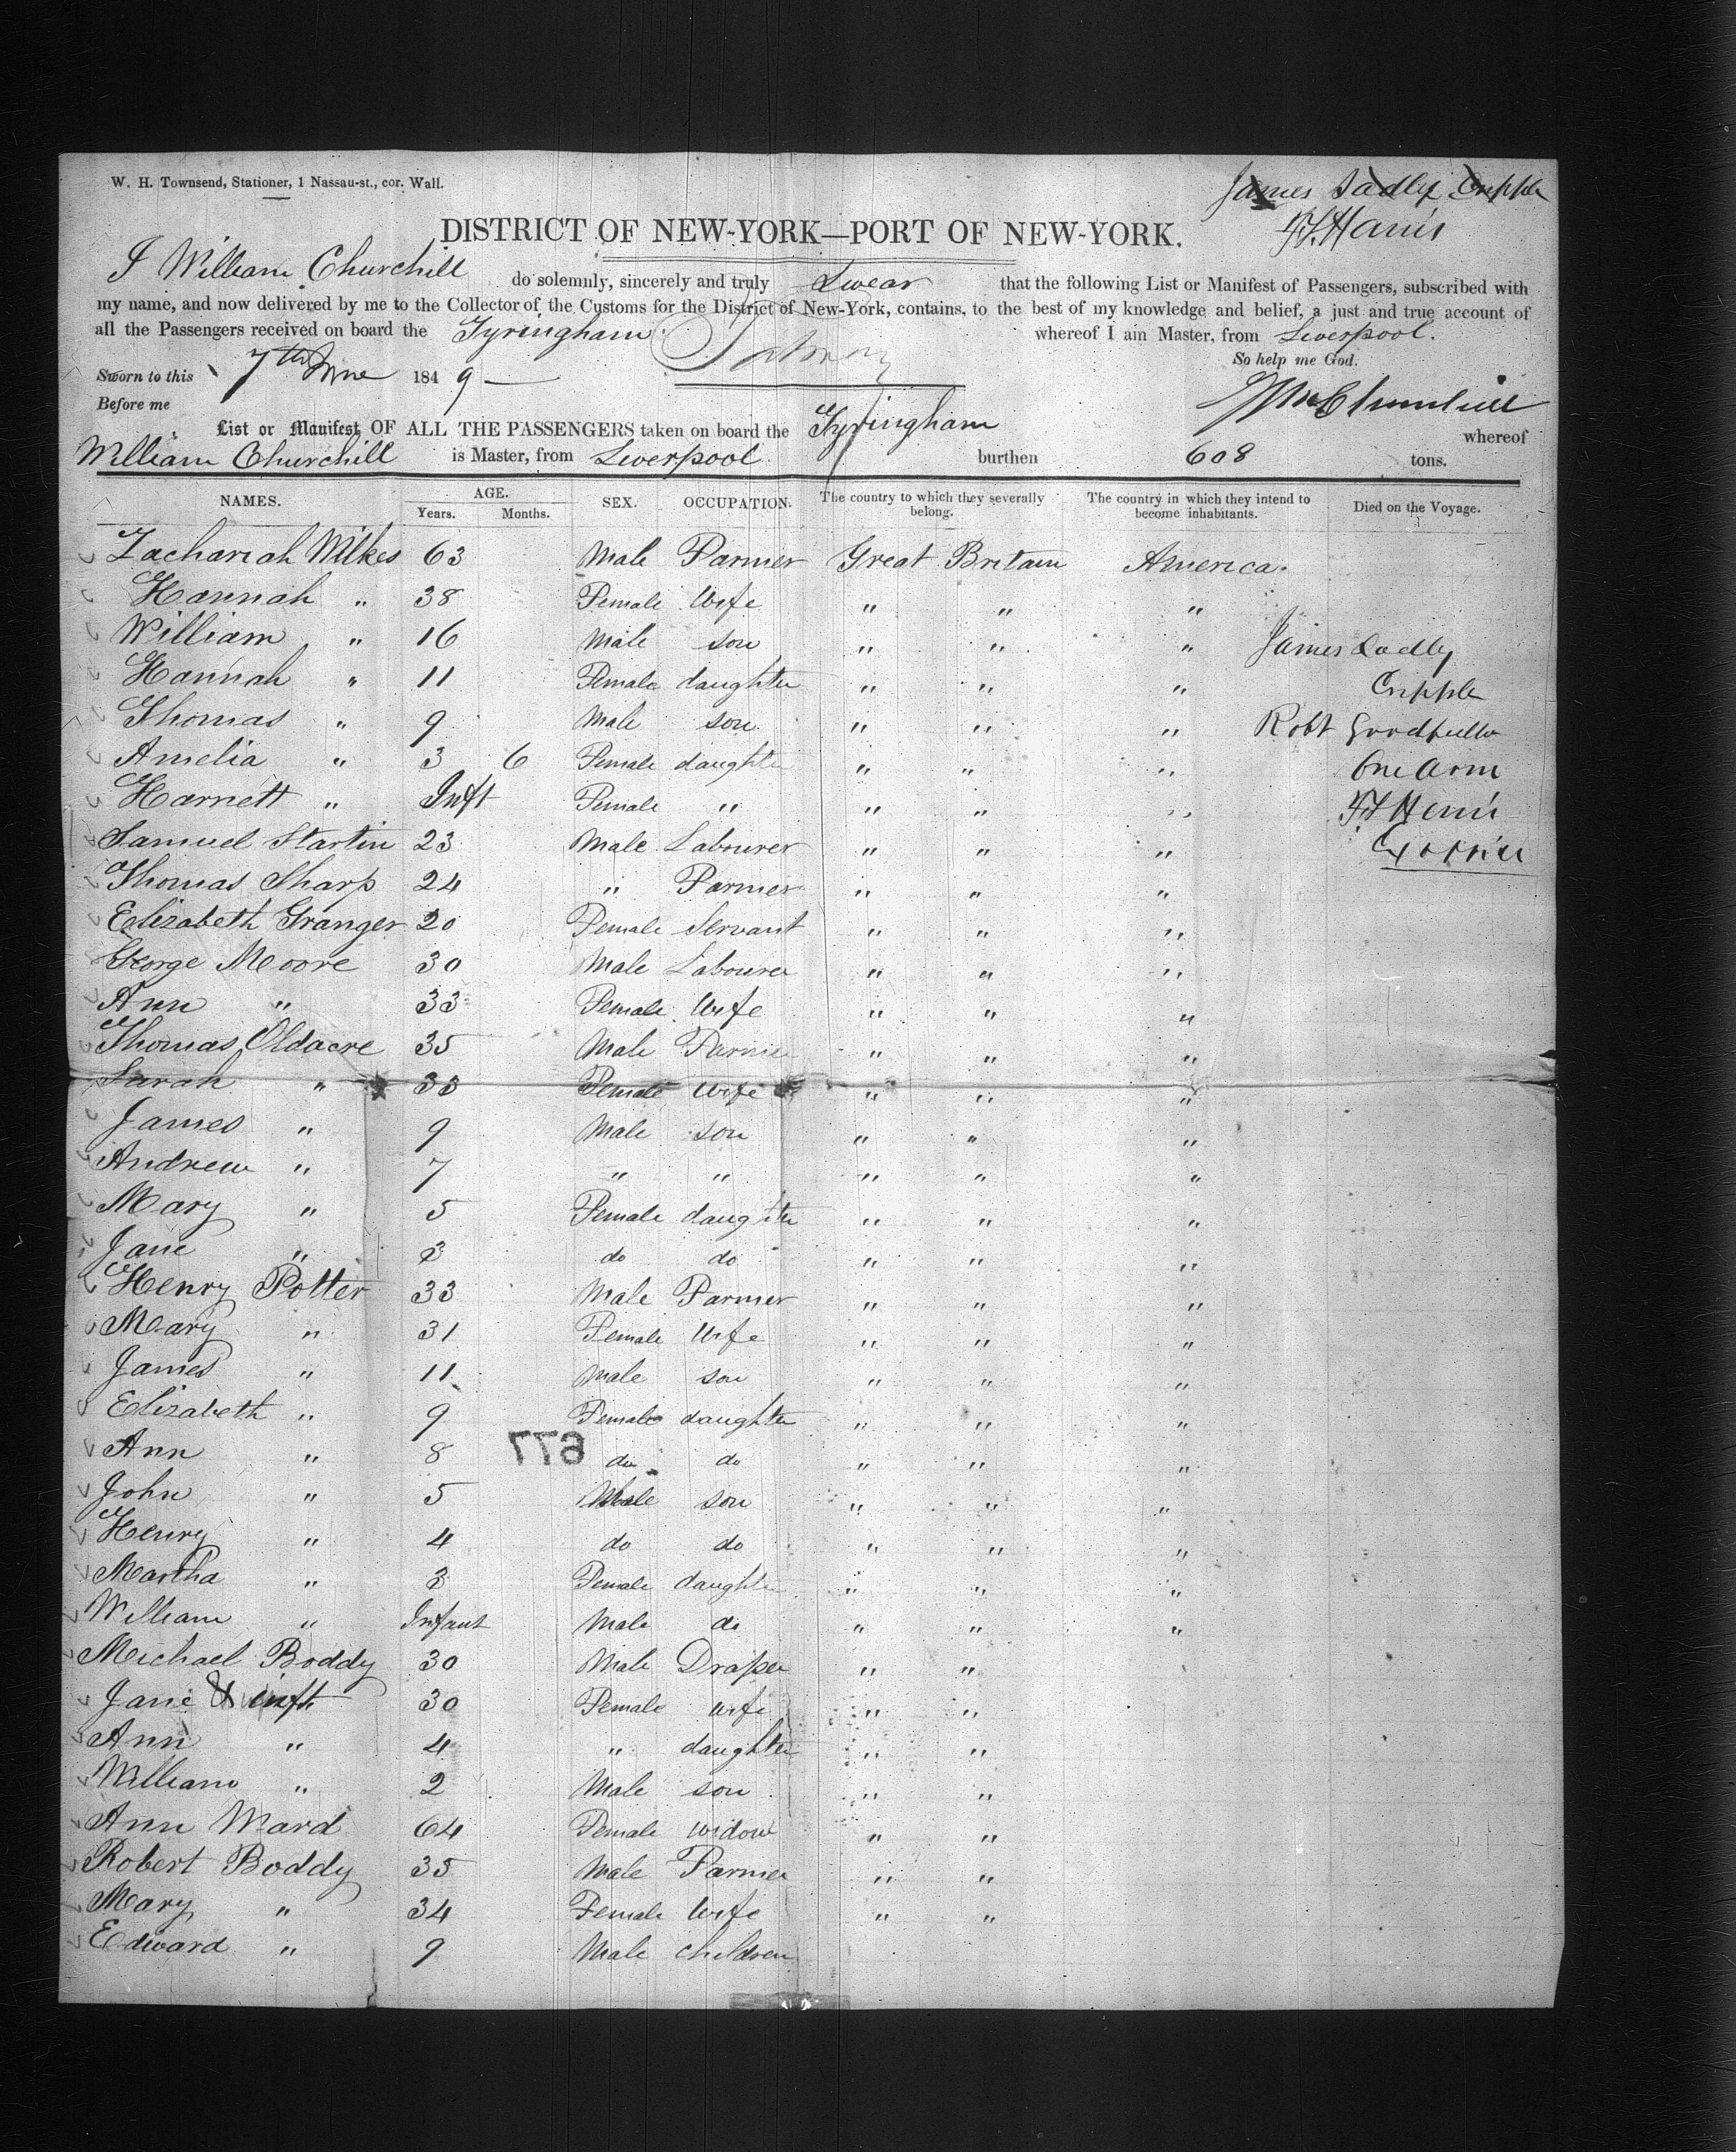 W. H. Townsend, Stationer, 1 Nassau-st., cor. Wall.
James Cripple
DISTRICT OF NEW-YORK—PORT OF NEW-YORK.
Harris
I William Churchill do solemnly, sincerely and truly Swear that the following List or Manifest of Passengers, subscribed with
my name, and now delivered by me to the Collector of the Customs for the District of New-York, contains, to the best of my knowledge and belief, a just and true account of
all the Passengers received on board the Tyringham whereof I am Master, from Liverpool.
So help me God.
Sworn to this 7th June 1849
Before me
Wm Churchill
List or Manifest OF ALL THE PASSENGERS taken on board the Tyringham whereof
William Churchill is Master, from Liverpool burthen 608 tons.
NAMES. AGE. Years. Months. SEX. OCCUPATION. The country to which they severally belong. The country in which they intend to become inhabitants. Died on the Voyage.
Zachariah Wilkes 63 Male Farmer Great Britain America.
Hannah " 38 Female Wife " " "
William " 16 Male son " " " James
Hannah " 11 Female daughter " " " Cripple
Thomas " 9 Male son " " " Robt Goodfellow
Amelia " 3 6 Female daughter " " " One Arm
Harriett " Inft Female " " " " Harris
Samuel Startin 23 Male Labourer " " "
Thomas Sharp 24 " Farmer " " "
Elizabeth Granger 20 Female Servant " " "
George Moore 30 Male Labourer " " "
Ann " 33 Female Wife " " "
Thomas Oldacre 35 Male Farmer " " "
Sarah " 33 Female wife " " "
James " 9 Male son " " "
Andrew " 7 " " " " "
Mary " 5 Female daughter " " "
Jane " 3 do do " " "
Henry Potter 33 Male Farmer " " "
Mary " 31 Female Wife " " "
James " 11 Male son " " "
Elizabeth " 9 Female daughter " " "
Ann " 8 do do " " "
677
John " 5 Male son " " "
Henry " 4 do do " " "
Martha " 3 Female daughter " " "
William " Infant Male do " " "
Michael Boddy 30 Male Draper " "
Jane & inft 30 Female wife " "
Ann " 4 " daughter " "
William " 2 Male son " "
Ann Ward 64 Female widow " "
Robert Boddy 35 Male Farmer " "
Mary " 34 Female Wife " "
Edward " 9 Male children